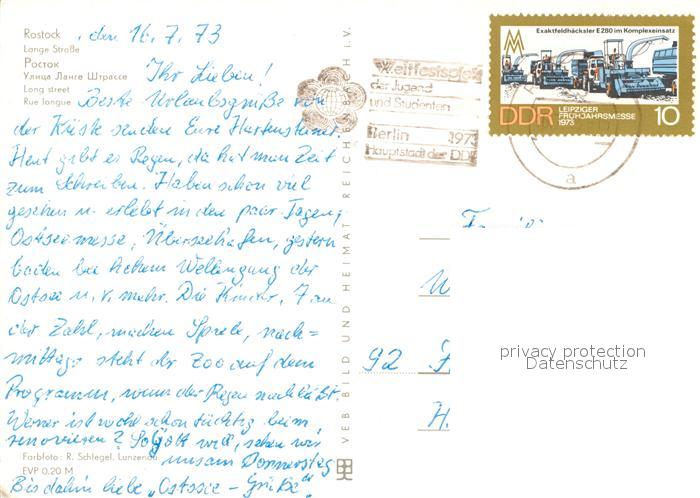 Rostock, den 16.7.73
Lange Straße
Росток
Улица Ланге Штрассе
Long street
Rue longue
Ihr Lieben!
Beste Urlaubsgrüße von
der Küste senden Eure
Heut gibt es Regen, da hat man Zeit
zum Schreiben. Haben schon viel
gesehen u. erlebt in den paar Tagen,
Ostseemesse, Überseehafen, gestern
baden bei hohem Wellengang der
Ostsee u. v. mehr. Die Kinder, 7 an
der Zahl, machen Spiele, nach=
mittags steht der Zoo auf dem
Programm, wenn der Regen nachläßt.
Werner ist wohl schon tüchtig beim
renovieren? So Gott will, sehen wir
uns am Donnerstag
Bis dahin liebe „Ostsee-Grüße"
Farbfoto: R. Schlegel, Lunzenau
EVP 0.20 M
VEB BILD UND HEIMAT REICHENBACH i. V.
Weltfestspiele
der Jugend
und Studenten
Berlin 1973
Hauptstadt der DDR
a
Exaktfeldhäcksler E 280 im Komplexeinsatz
DDR
LEIPZIGER
FRÜHJAHRSMESSE
1973
10
92
privacy protection
Datenschutz